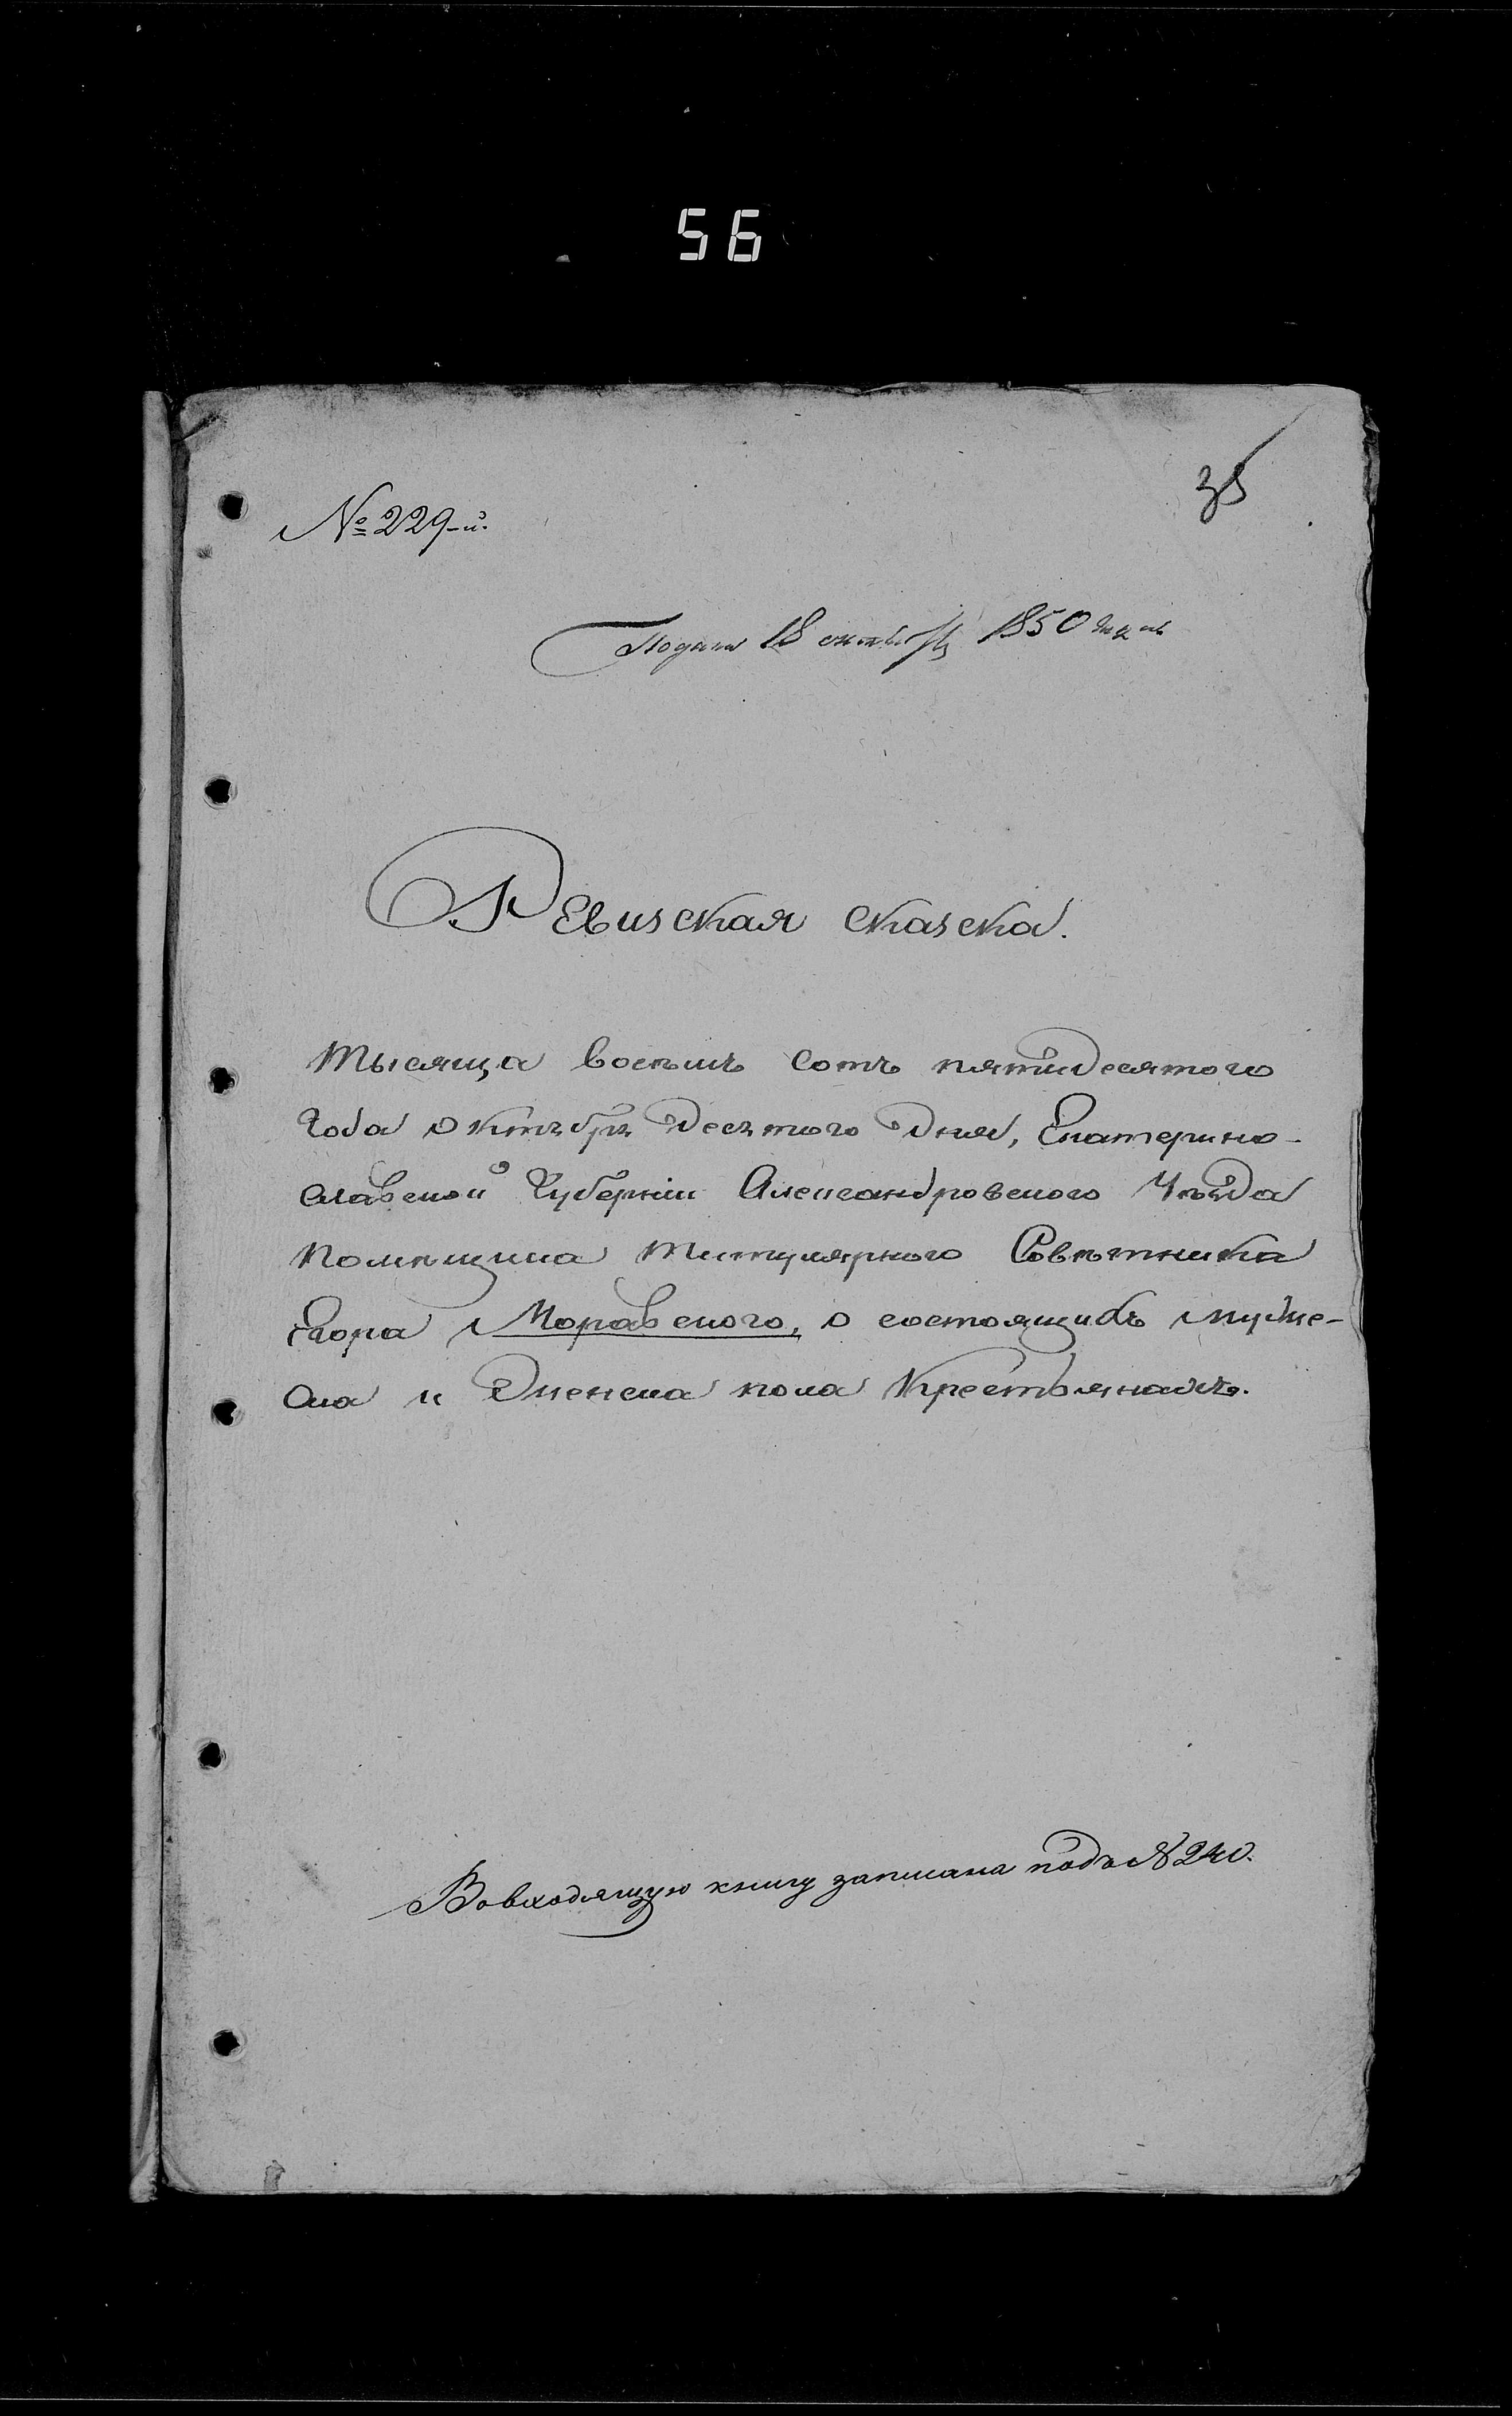 56
35
№ 229-й.
Подана 18 октября 1850 года
Ревизская сказка.
Тысяща восемь сотъ пятидесятого
Года Октября десятого дня, Екатерино-
славской Губерніи Александровского Уѣзда
Помѣщика Титулярного Совѣтника
Егора Моравского, о состоящихъ муже-
ска и женска пола Крестьянахъ.
Во входящую книгу записана подъ № 240.